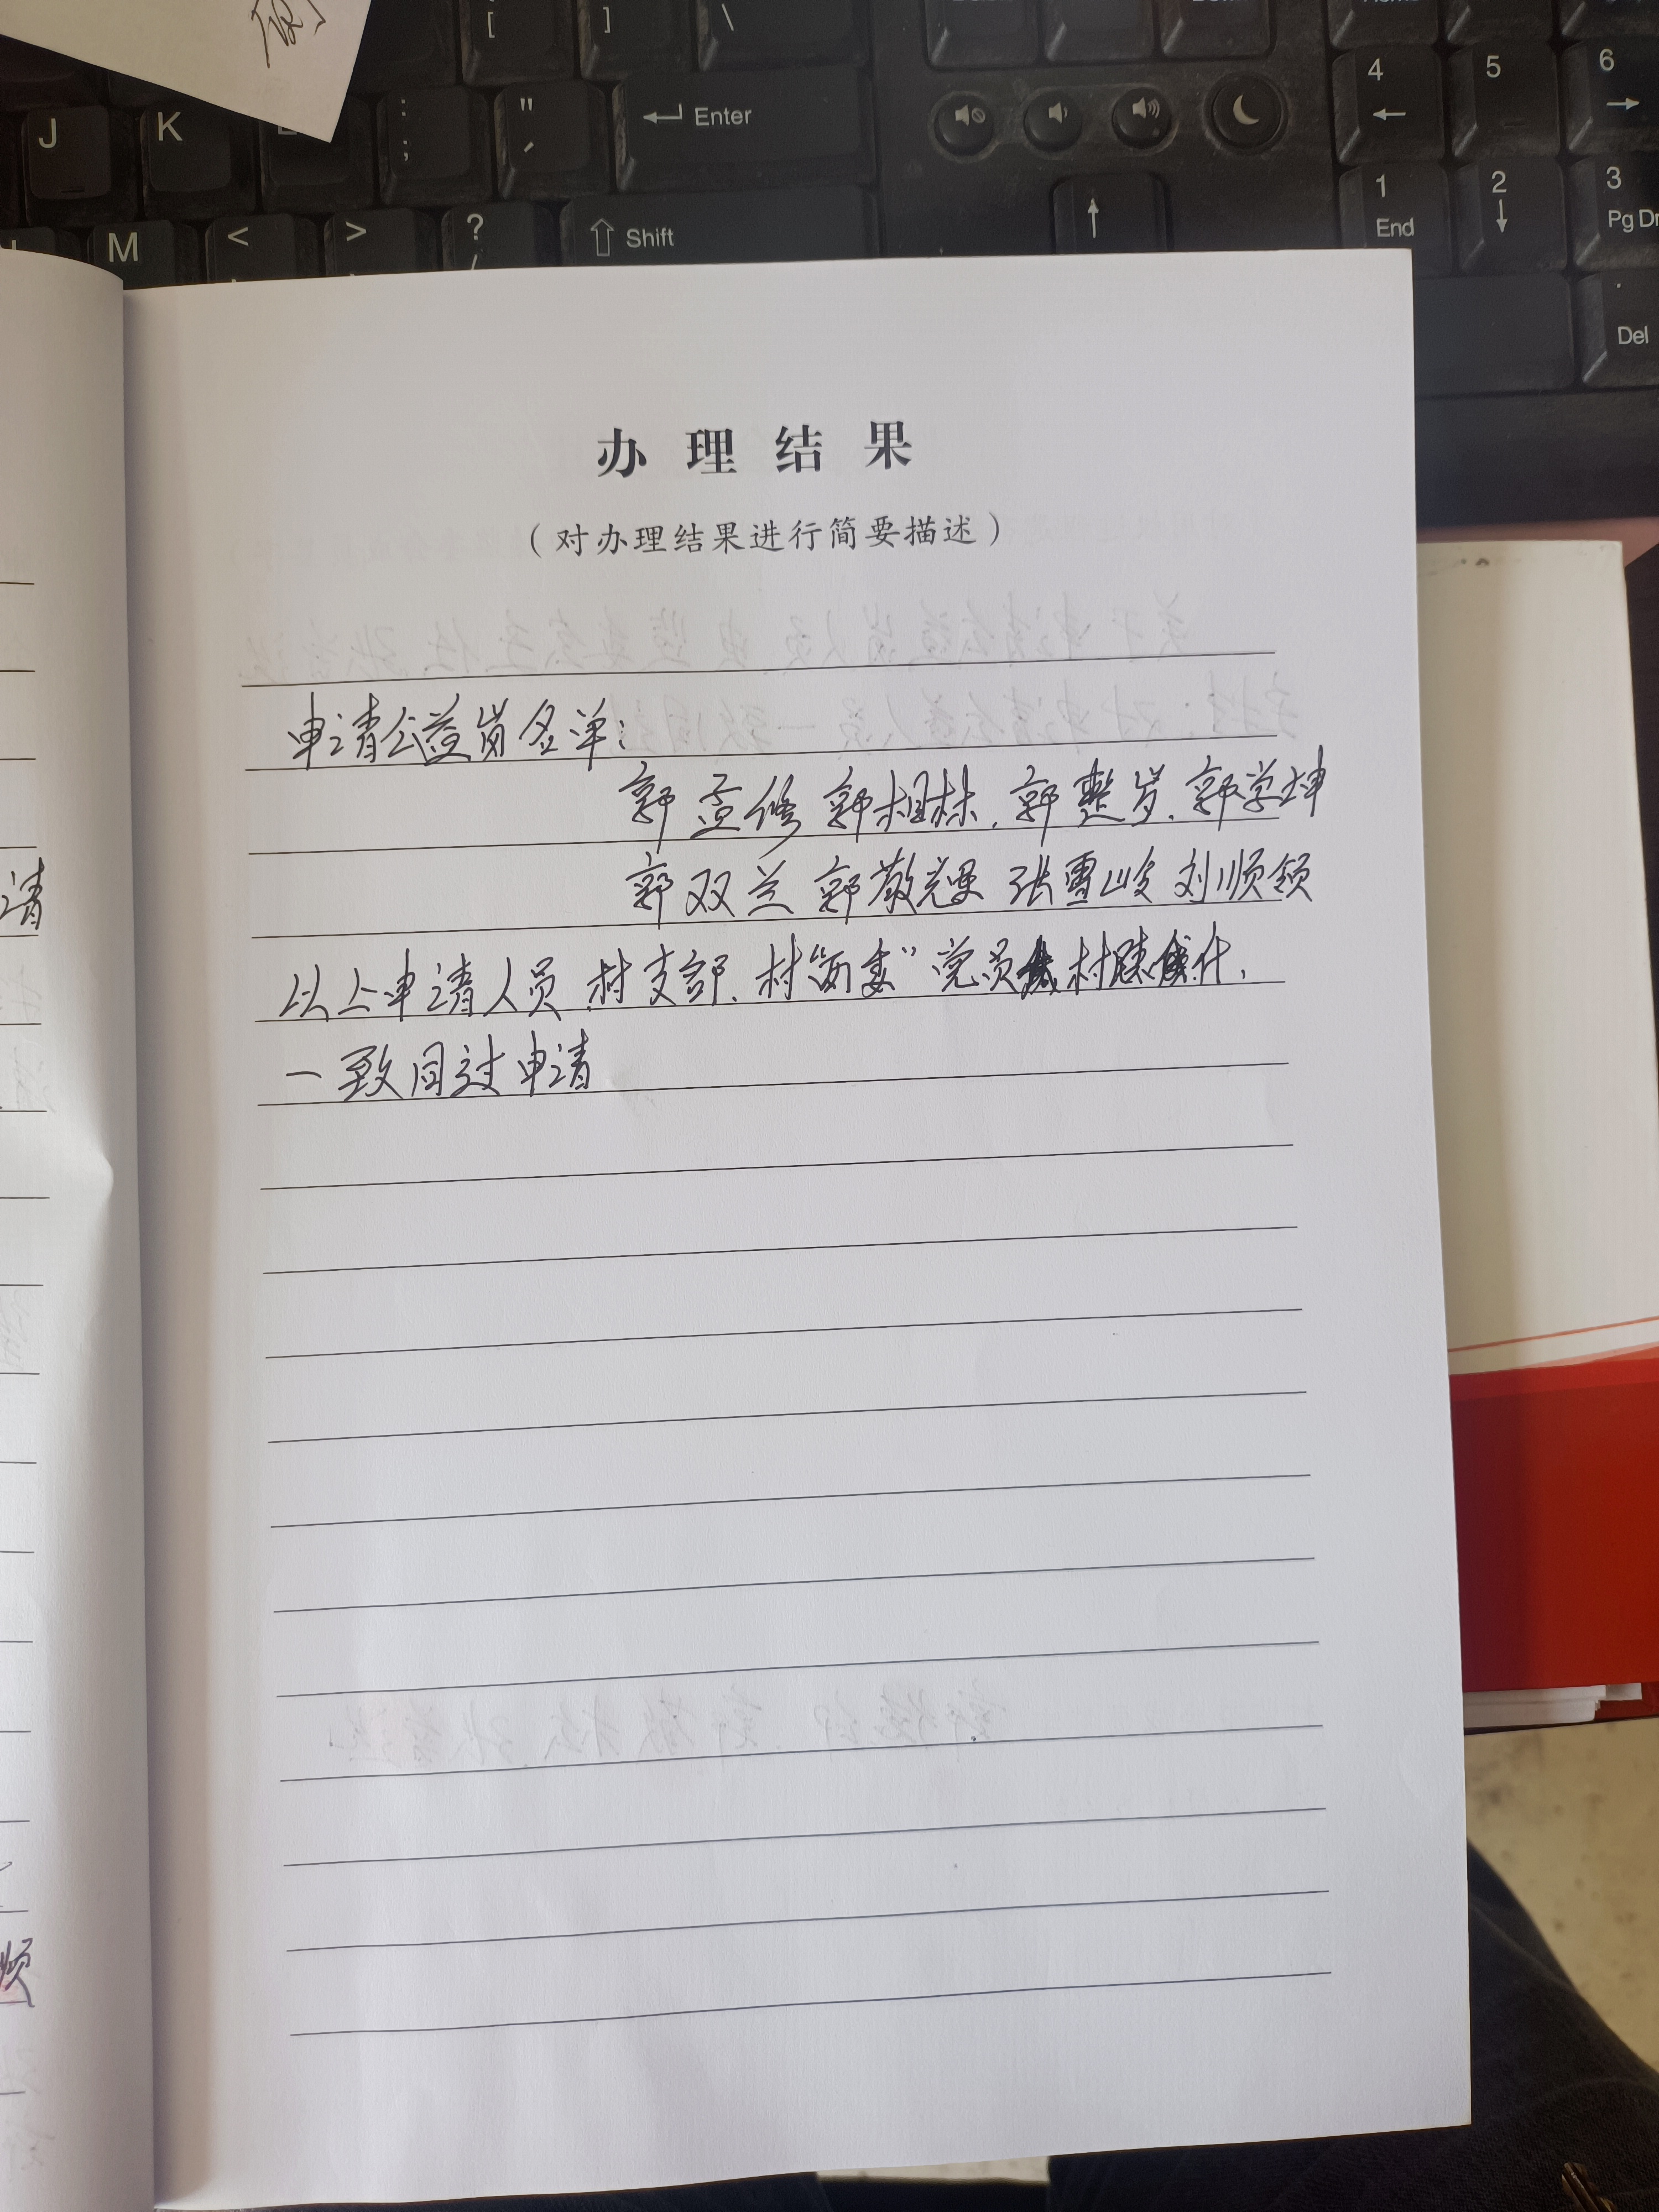 [
]
\
J
K
:
;
"
'
Enter
4
5
6
M
<
>
?
/
Shift
1
End
2
3
Pg
Del
办理结果
（对办理结果进行简要描述）
申请公益岗名单：
郭孟修 郭相林、郭整岁、郭学坤
郭双兰 郭敬 张雪峻 刘顺领
以上申请人员 村支部、村"两委"党员 村 代、
一致同过申请
请
顺